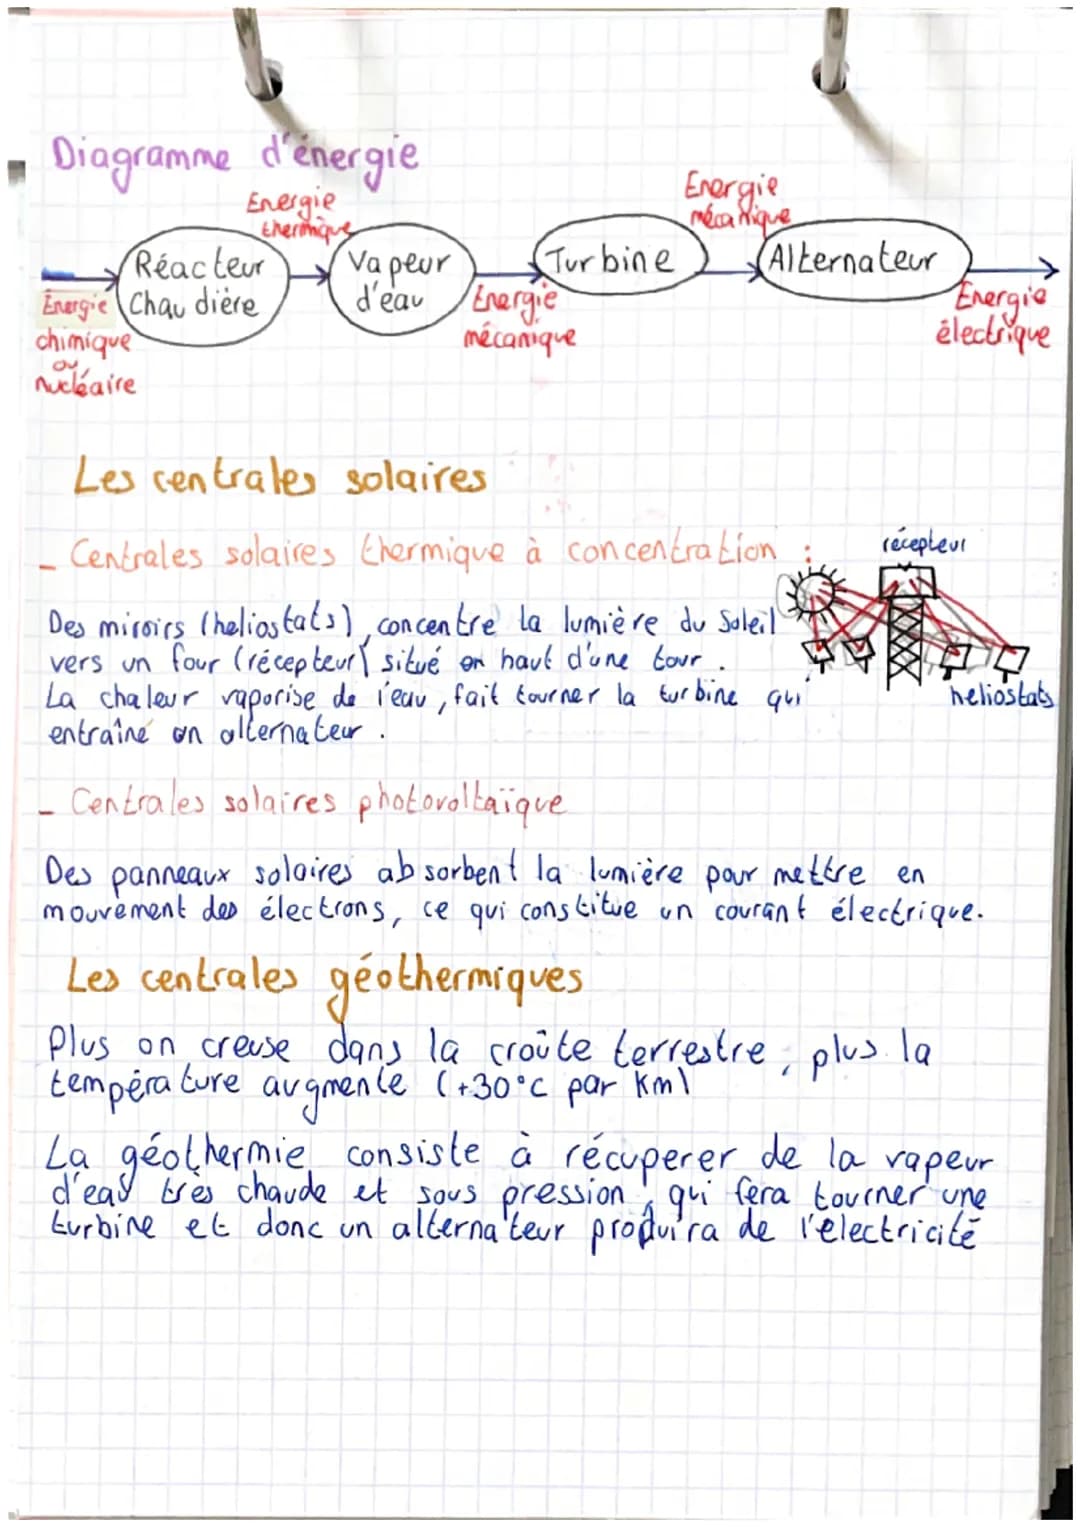 Diagramme d'énergie
Energie
thermique
Energie
mécanique
Réacteur
Chaudière
Vapeur
d'eau
Turbine
Alternateur
Énergie
chimique
ou
nucléaire
Énergie
mécanique
Énergie
électrique
Les centrales solaires
- Centrales solaires thermique à concentration :
récepteur
Des miroirs (heliostats), concentre la lumière du Soleil
vers un four (récepteur) situé en haut d'une tour.
La chaleur vaporise de l'eau, fait tourner la turbine qui
entraîne un alternateur.
heliostats
- Centrales solaires photovoltaïque
Des panneaux solaires absorbent la lumière pour mettre en
mouvement des électrons, ce qui constitue un courant électrique.
Les centrales géothermiques
Plus on creuse dans la croûte terrestre, plus la
température augmente (+30°C par Km)
La géothermie consiste à récuperer de la vapeur
d'eau très chaude et sous pression, qui fera tourner une
turbine et donc un alternateur produira de l'electricité